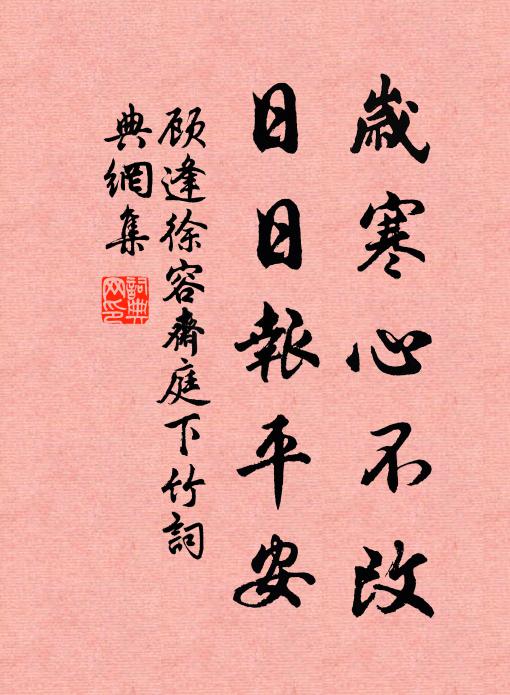 歲寒心不改
日日報平安
顾逢徐容齋庭下竹詞
典網集
詞典网印